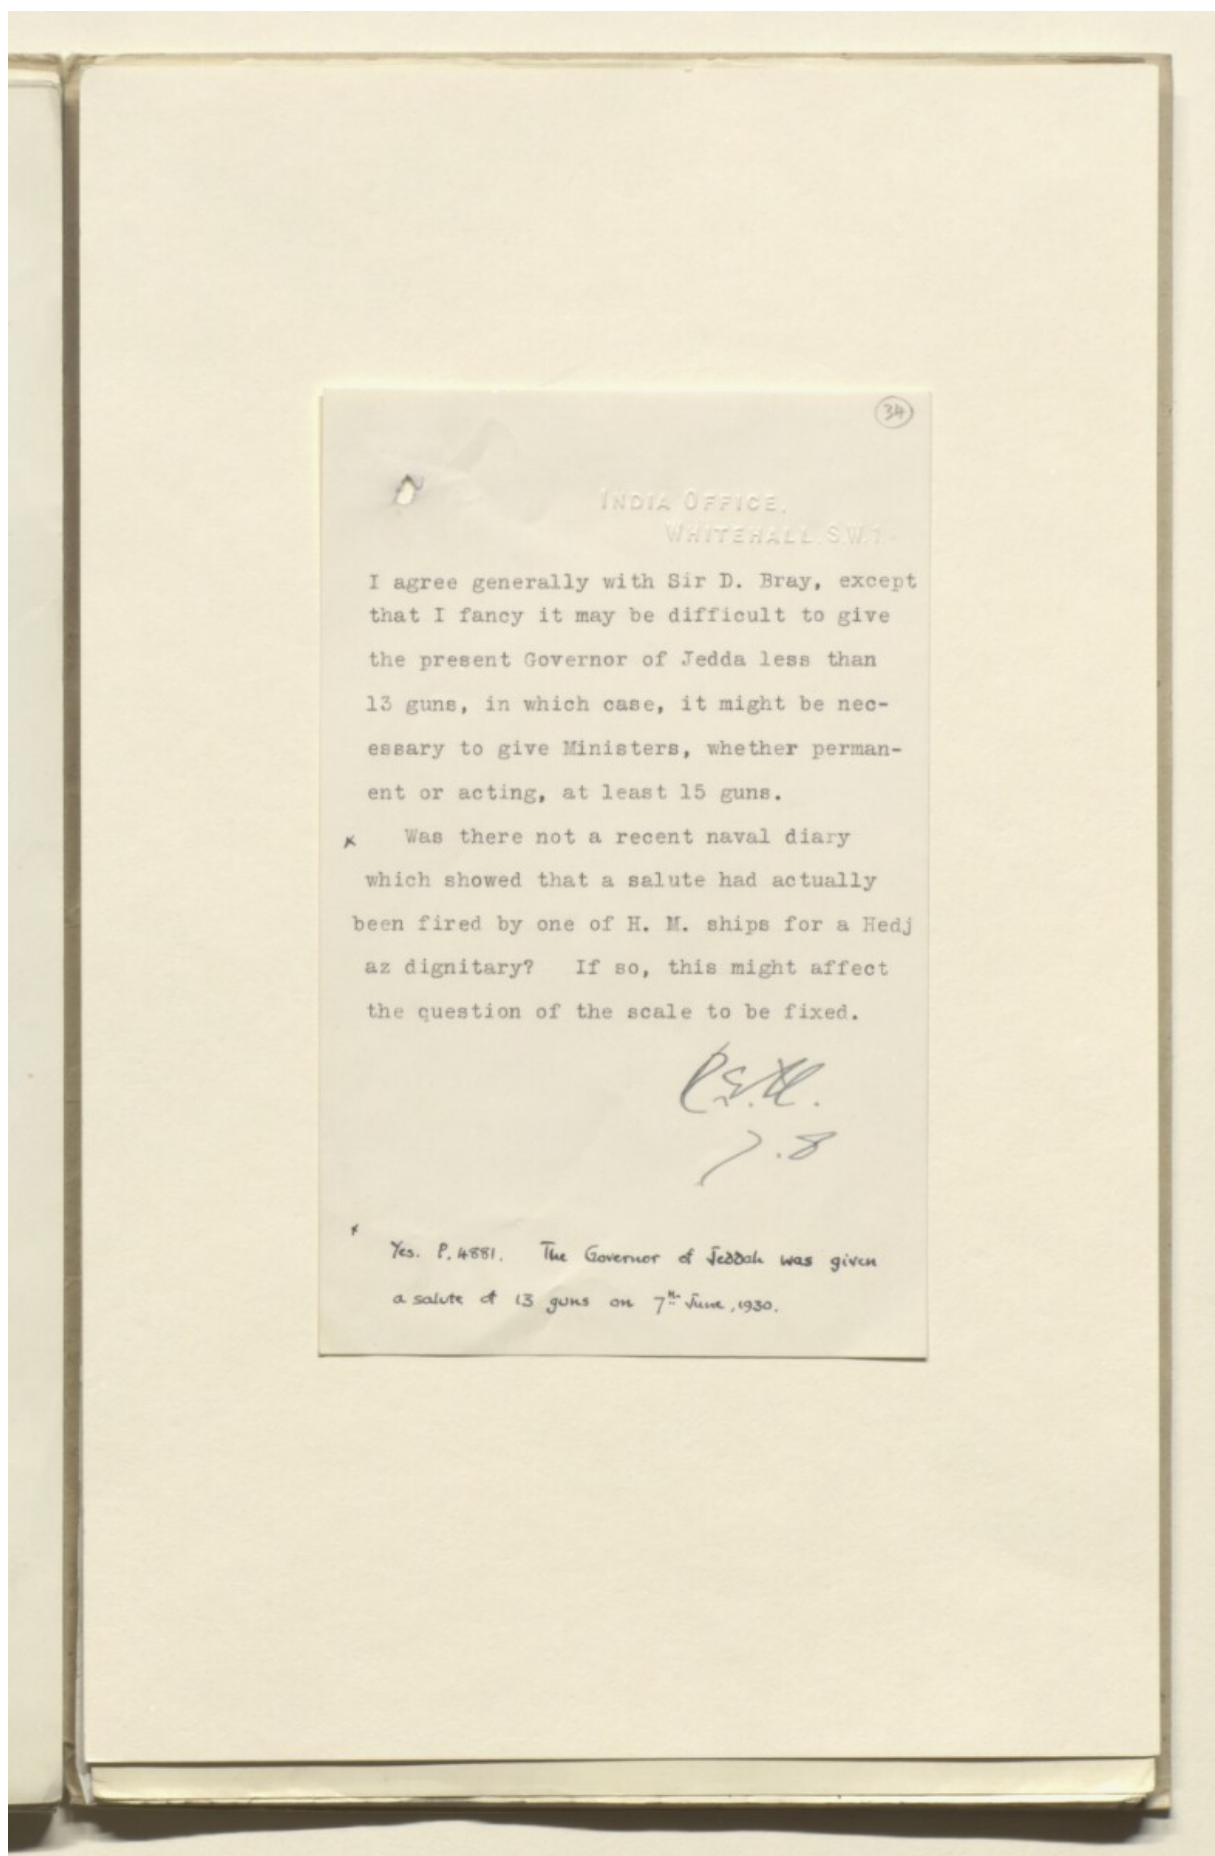 34
INDIA OFFICE,
WHITEHALL. S.W.1.
I agree generally with Sir D. Bray, except
that I fancy it may be difficult to give
the present Governor of Jedda less than
13 guns, in which case, it might be nec-
essary to give Ministers, whether perman-
ent or acting, at least 15 guns.
x Was there not a recent naval diary
which showed that a salute had actually
been fired by one of H. M. ships for a Hedj
az dignitary? If so, this might affect
the question of the scale to be fixed.
7.8
x
Yes. P. 4881. The Governor of Jeddah was given
a salute of 13 guns on 7th June, 1930.